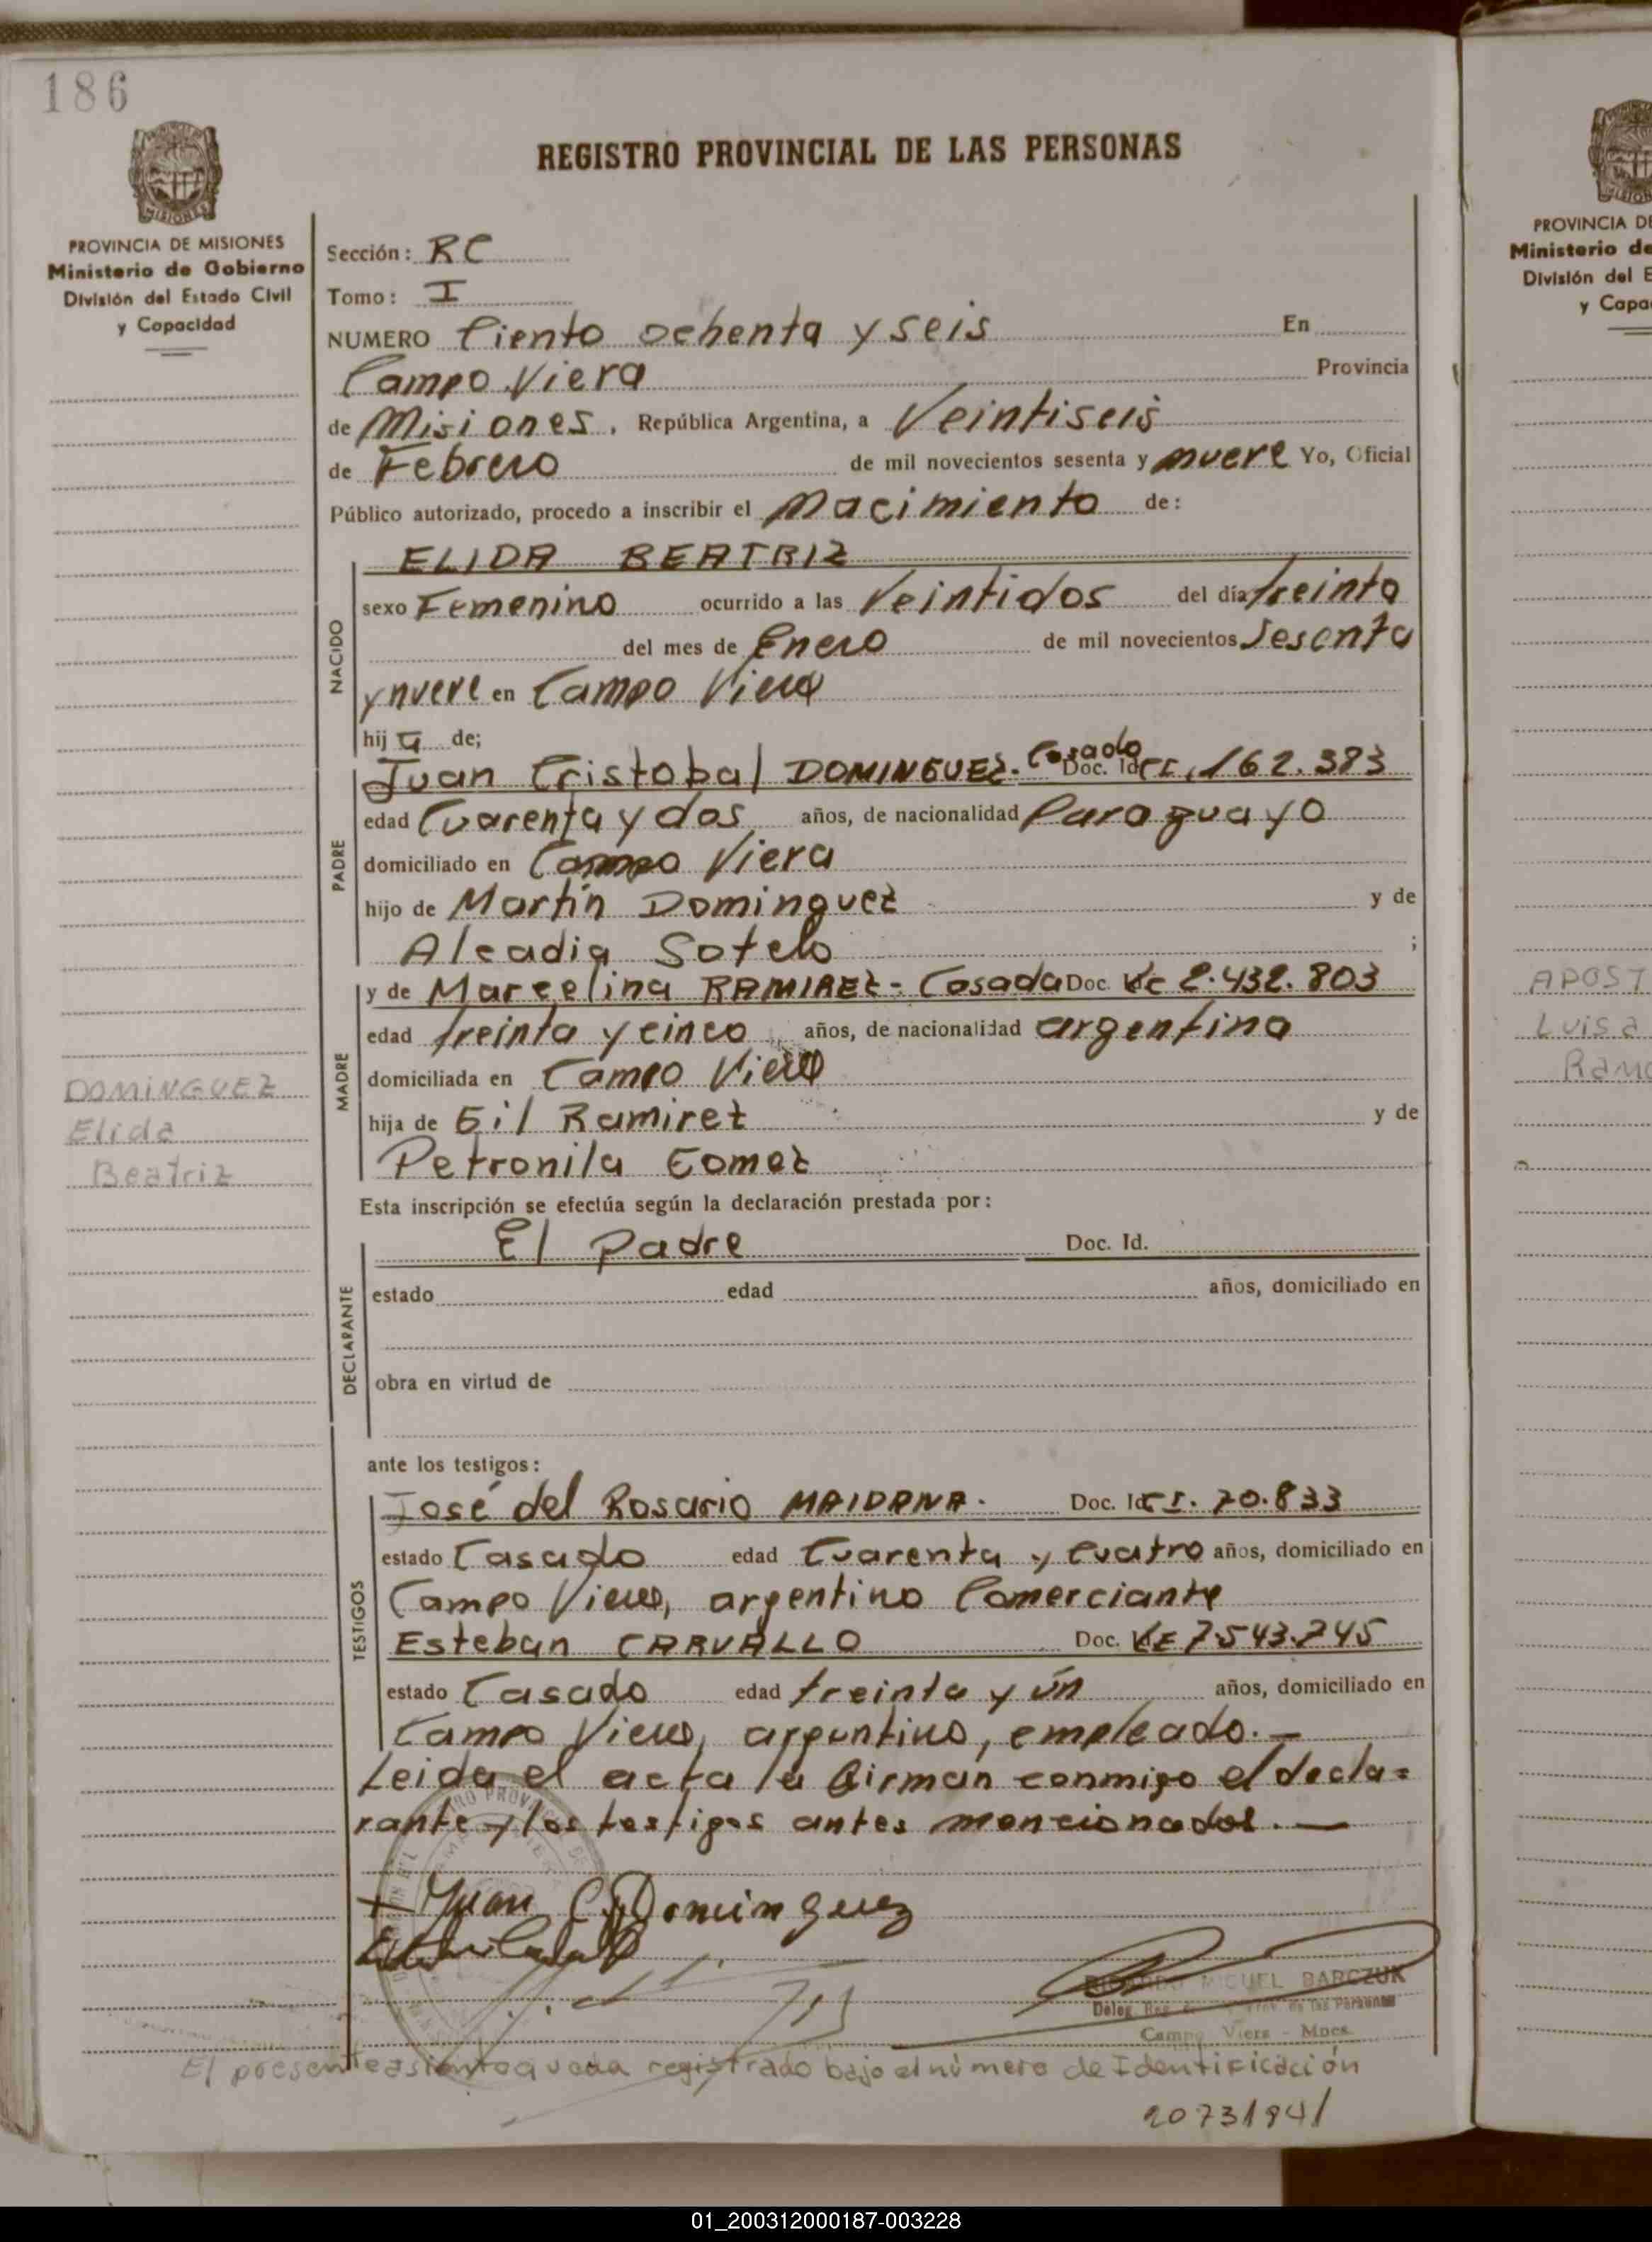 186
REGISTRO PROVINCIAL DE LAS PERSONAS
PROVINCIA DE MISIONES
Ministerio de Gobierno
División del Estado Civil
y Capacidad
Sección: RC
Tomo: I
NUMERO Ciento ochenta y seis En
Campo Viera Provincia
de Misiones, República Argentina, a Veintiseis
de Febrero de mil novecientos sesenta y nueve Yo, Oficial
Público autorizado, procedo a inscribir el Nacimiento de:
NACIDO
ELIDA BEATRIZ
sexo Femenino ocurrido a las Veintidos del día treinta
del mes de Enero de mil novecientos Sesenta
y nueve en Campo Viera
hij a de;
PADRE
Juan Cristobal DOMINGUEZ. Casado Doc. Id CI. 162.383
edad Cuarenta y dos años, de nacionalidad Paraguayo
domiciliado en Campo Viera
hijo de Martín Dominguez y de
Alcadia Sotelo ;
MADRE
y de Marcelina RAMIREZ - Casada Doc. LC 2.432.803
edad treinta y cinco años, de nacionalidad argentina
domiciliada en Campo Viera
hija de Gil Ramirez y de
Petronila Gomez
DOMINGUEZ
Elida
Beatriz
Esta inscripción se efectúa según la declaración prestada por:
DECLARANTE
El padre Doc. Id.
estado edad años, domiciliado en
obra en virtud de
ante los testigos:
TESTIGOS
José del Rosario MAIDANA. Doc. Id CI. 70.833
estado Casado edad Cuarenta y Cuatro años, domiciliado en
Campo Viera, argentino Comerciante
Esteban CARVALLO Doc. LE 7.543.745
estado Casado edad treinta y ún años, domiciliado en
Campo Viera, argentino, empleado. —
Leida el acta la firman conmigo el decla=
rante y los testigos antes mencionados. —
+ Juan C. Dominguez
RICARDO MIGUEL BARCZUK
Campo Viera - Mnes.
El presente asiento queda registrado bajo el número de Identificación
20731941
PROVINCIA DE
Ministerio de
División del E
y Capa
APOST
Luisa
Ramo
01_200312000187-003228